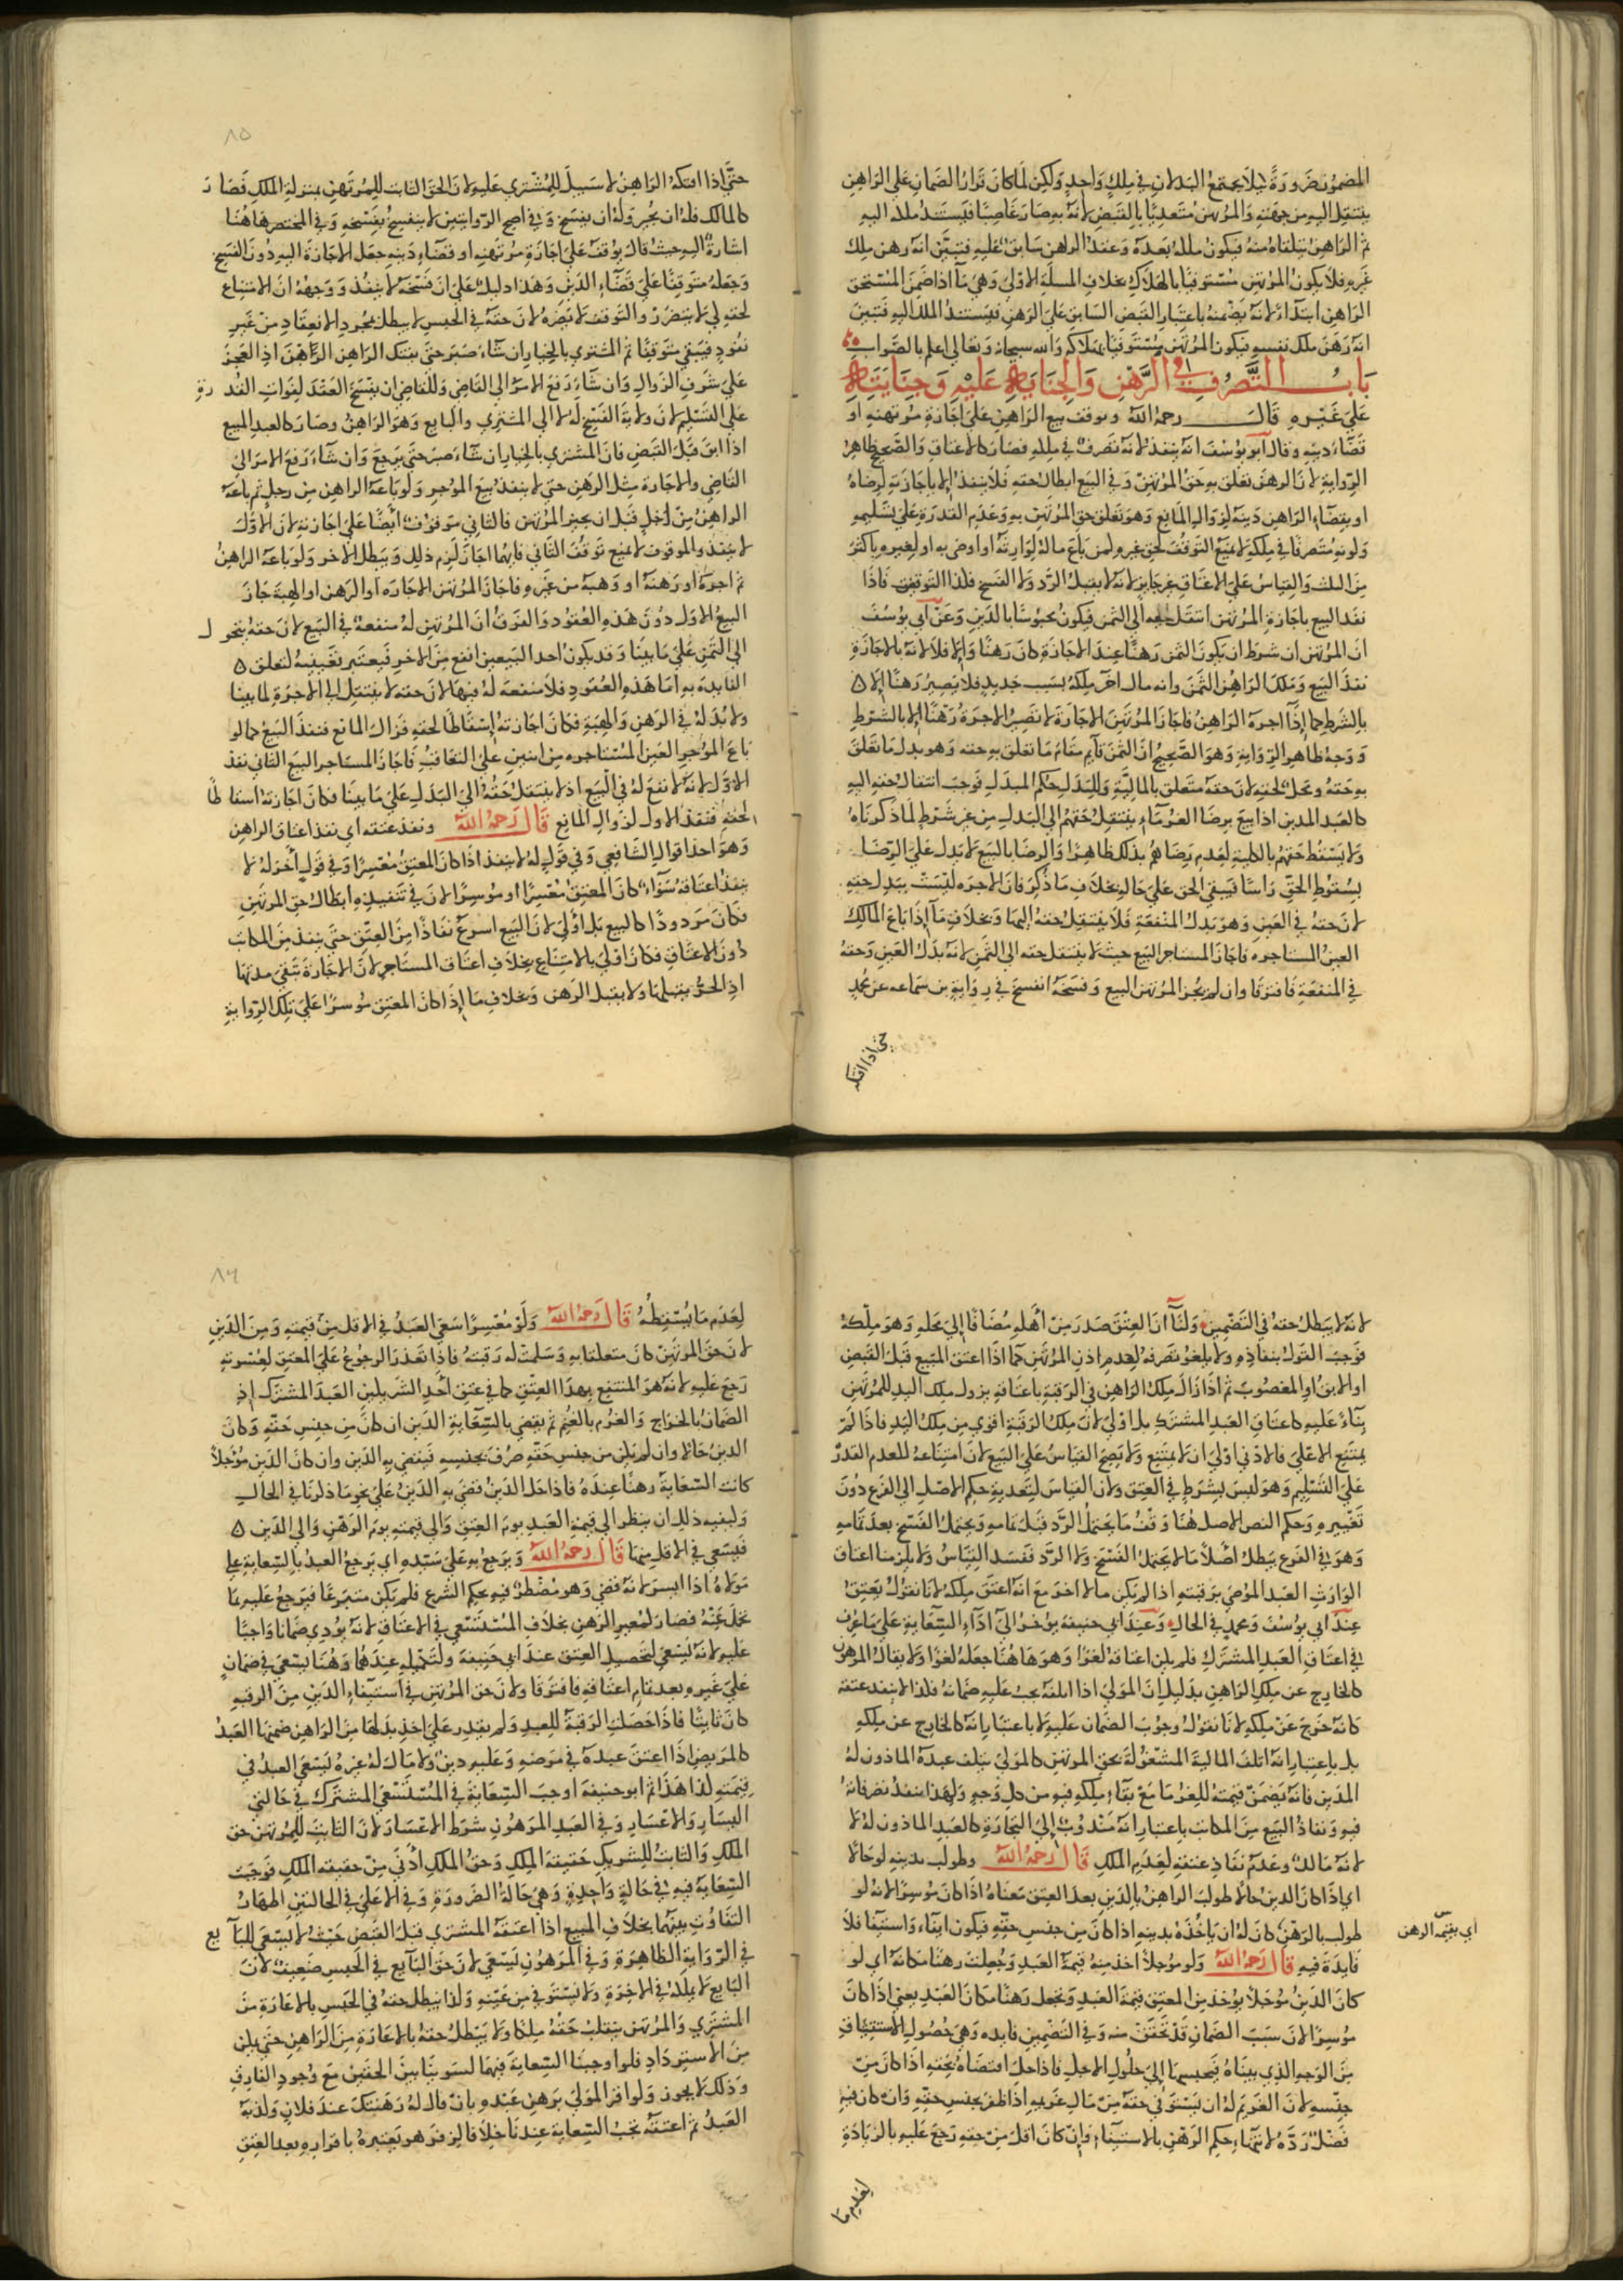 المضمون ضرورة ليلا يجتمع البدلان في ملك واحد ولكن لما كان قرار الضمان على الراهن
ينتقل اليه من جهته والمرتهن متعديا بالقبض لانه به صار غاصبا فيستند ملكه اليه
ثم الراهن يتلقاه منه فيكون ملكه بعده وعقد الراهن سابق عليه فتبين انه رهن ملك
غيره فلا يكون المرتهن مستوفيا بالهلاك بخلاف المسلة الاولى وهي ما اذا ضمن المستحق
الراهن ابتداء لانه يضمنه باعتبار القبض السابق على الرهن فيستند الملك اليه فتبين
انه رهن ملك نفسه فيكون المرتهن مستوفيا بهلاكه والله سبحانه وتعالى اعلم بالصواب
باب التصرف في الرهن والجناية عليه وجنايته
على غيره قال رحمه الله وتوقف بيع الراهن على اجازة مرتهنه او
قضاء دينه وقال ابو يوسف انه ينفذ لانه تصرف في ملكه فصار كالاعتاق والصحيح ظاهر
الرواية لان الرهن تعلق به حق المرتهن وفي البيع ابطال حقه فلا ينفذ الا باجازته لرضاه
او بقضاء الراهن دينه لزوال المانع وهو تعلق حق المرتهن به وعدم القدرة على تسليمه
ولونه متصرفا في ملكه لا يمنع التوقف لحق غيره لمن باع ماله لوارثه او اوصى به او لغيره باكثر
من الثلث والقياس على الاعتاق غير جايز لانه لا يقبل الرد ولا الفسخ فلذا التوقف فاذا
نفذ البيع باجازة المرتهن انتقل حقه الى الثمن فيكون محبوسا بالدين وعن ابي يوسف
ان المرتهن ان شرط ان يكون الثمن رهنا عند الاجازة كان رهنا والا فلا لانه بالاجازة
نفذ البيع وملك الراهن الثمن وانه مال اخر ملكه بسبب جديد فلا يصير رهنا الا
بالشرط كما اذا اجره الراهن فاجاز المرتهن الاجارة لا تصير الاجرة رهنا الا بالشرط
ووجه ظاهر الرواية وهو الصحيح ان الثمن قايم مقام ما تعلق به حقه وهو بدل ما تعلق
به حقه ومحل لحقه لان حقه متعلق بالمالية وللبدل حكم المبدل فوجب انتقال حقه اليه
كالعبد المدين اذا بيع برضا الغرماء ينتقل حقهم الى البدل من غير شرط لما ذكرناه
ولا يسقط حقهم بالكلية لعدم رضاهم بذلك ظاهرا والرضا بالبيع لا يدل على الرضا
بسقوط الحق راسا فيبقى الحق على حاله بخلاف ما ذكر فان الاجره ليست ببدل حقه
لان حقه في العين وهو بدل المنفعة فلا ينتقل حقه اليها وبخلاف ما اذا باع المالك
العين المستاجره فاجاز المستاجر البيع حيث لا ينتقل حقه الى الثمن لانه بدل العين وحقه
في المنفعة فافترقا وان لم يجز المرتهن البيع وفسخه انفسخ في رواية بن سماعه عن محمد
حتى اذا افتكه
٨٥
حتى اذا افتكه الراهن لا سبيل للمشتري عليه لان الحق الثابت للمرتهن بمنزلة الملك فصار
كالمالك فله ان يجيز وله ان يفسخ وفي اصح الروايتين لا ينفسخ بفسخه وفي المختصر هاهنا
اشارة اليه حيث قال يوقف على اجازة مرتهنه او قضاء دينه جعل الاجازة اليه دون الفسخ
وجعله متوقفا على قضاء الدين وهذا دليل على ان فسخه لا ينفذ ووجهه ان الامتناع
لحقه لي لا يتضرر والتوقف لا يضره لان حقه في الحبس لا يبطل بمجرد الانعقاد من غير
نفوذ فيبقى متوقفا ثم المشتري بالخيار ان شاء صبر حتى يفتك الراهن الرهن اذ العجز
على شرف الزوال وان شاء رفع الامر الى القاضي وللقاضي ان يفسخ العقد لفوات القدرة
على التسليم لان ولاية الفسخ له لا الى المشتري والبايع وهو الراهن وصار كالعبد المبيع
اذا ابق قبل القبض فان المشتري بالخيار ان شاء صبر حتى يرجع وان شاء رفع الامر الى
القاضي والاجارة مثل الرهن حتى لا ينفذ بيع المؤجر ولو باعه الراهن من رجل ثم باعه
الراهن من اخر قبل ان يجيز المرتهن فالثاني موقوف ايضا على اجازته لان الاول
لا ينفذ والموقوف لا يمنع توقف الثاني فايهما اجاز لزم ذلك وبطل الاخر ولو باعه الراهن
ثم اجره او رهنه او وهبه من غيره فاجاز المرتهن الاجاره او الرهن او الهبة جاز
البيع الاول دون هذه العقود والفرق ان المرتهن له منفعة في البيع لان حقه يتحول
الى الثمن على ما بينا وقد يكون احد البيعين انفع من الاخر فيعتبر تعيينه لتعلق
الفايدة به اما هذه العقود فلا منفعة له فيها لان حقه لا ينتقل الى الاجرة لما بينا
ولا بدل في الرهن والهبة فكان اجازته اسقاطا لحقه فزال المانع فنفذ البيع كما لو
باع المؤجر العين المستاجره من اثنين على التعاقب فاجاز المستاجر البيع الثاني نفذ
الاول لانه لا نفع له في البيع اذ لا ينتقل حقه الى البدل على ما بينا فكان اجازته اسقاطا
لحقه فنفذ الاول لزوال المانع قال رحمه الله ونفذ عتقه اي نفذ اعتاق الراهن
وهو احد اقوال الشافعي وفي قول له لا ينفذ اذا كان المعتق معسرا وفي قول اخر له لا
ينفذ اعتاقه سواء كان المعتق معسرا او موسرا لان في تنفيذه ابطال حق المرتهن
فكان مردودا كالبيع بل اولى لان البيع اسرع نفاذا من العتق حتى ينفذ من المكاتب
دون الاعتاق فكان اولى بالامتناع بخلاف اعتاق المستاجر لان الاجارة تبقى مدتها
اذ الحر يقبلها ولا يقبل الرهن وبخلاف ما اذا كان المعتق موسرا على تلك الرواية
لانه لا يبطل حقه في التضمين ولنا ان العتق صدر من اهله مضافا الى محله وهو ملكه
فوجب القول بنفاذه ولا يلغو تصرفه لعدم اذن المرتهن كما اذا اعتق المبيع قبل القبض
او الابق او المغصوب ثم اذا زال ملك الراهن في الرقبة باعتاقه يزول ملك اليد للمرتهن
بناء عليه كاعتاق العبد المشترك بل اولى لان ملك الرقبة اقوى من ملك اليد فاذا لم
يمتنع الاعلى فالادنى اولى ان لا يمتنع ولا يصح القياس على البيع لان امتناعه لعدم القدرة
على التسليم وهو ليس بشرط في العتق ولان القياس لتعدية حكم الاصل الى الفرع دون
تغييره وحكم النص الاصل هنا وقف ما يحتمل الرد قبل تمامه ويحتمل الفسخ بعد تمامه
وهو في الفرع يبطل اصلا ما لا يحتمل الفسخ ولا الرد ففسد القياس ولا يلزمنا اعتاق
الوارث العبد الموصى برقبته اذا لم يكن مال اخر مع انه اعتق ملكه لانا نقول يعتق
عند ابي يوسف ومحمد في الحال وعند ابي حنيفة يؤخر الى اداء السعاية على ما عرف
في اعتاق العبد المشترك فلم يكن اعتاقه لغوا وهو هاهنا جعله لغوا ولا يقال المرهون
كالخارج عن ملك الراهن بدليل ان المولى اذا اتلفه يجب عليه ضمانه فلذا لا ينفذ عتقه
كانه خرج عن ملكه لانا نقول وجوب الضمان عليه لا باعتبار انه كالخارج عن ملكه
بل باعتبار انه اتلف المالية المشغولة بحق المرتهن كالمولى يتلف عبده الماذون له
المدين فانه يضمن قيمته للغرما مع بقاء ملكه فيه من كل وجه ولهذا ينفذ تصرفاته
فيه ونفاذ البيع من المكاتب باعتبار انه مندوب الى التجارة كالعبد الماذون له لا
لانه مالك وعدم نفاذ عتقه لعدم الملك قال رحمه الله وطولب بدينه لو حالا
اي اذا كان الدين حالا طولب الراهن بالدين بعد العتق معناه اذا كان موسرا لانه لو
طولب بالرهن كان له ان ياخذه بدينه اذا كان من جنس حقه فيكون ايفاء واستيفا فلا
اي بقيمه الرهن
فايدة فيه قال رحمه الله ولو مؤجلا اخذ منه قيمة العبد وجعلت رهنا مكانه اي لو
كان الدين مؤجلا يؤخذ من المعتق قيمة العبد ويجعل رهنا مكان العبد يعني اذا كان
موسرا لان سبب الضمان قد تحقق منه وفي التضمين فايده وهي حصول الاستيثاق
من الوجه الذي بيناه فيحبسها الى حلول الاجل فاذا حل اقتضاه بحقه اذا كان من
جنسه لان الغريم له ان يستوفي حقه من مال غريمه اذا ظفر بجنس حقه وان كان فيه
فضل رده لانتهاء حكم الرهن بالاستيفاء وان كان اقل من حقه رجع عليه بالزيادة
لعدم ما
٨٦
لعدم ما يسقطه قال رحمه الله ولو معسرا سعى العبد في الاقل من قيمته ومن الدين
لان حق المرتهن كان متعلقا به وسلمت له رقبته فاذا تعذر الرجوع على المعتق لعسرته
رجع عليه لانه هو المنتفع بهذا العتق كما في عتق احد الشريكين العبد المشترك اذ
الضمان بالخراج والغرم بالغنم ثم يقضي بالسعاية الدين ان كان من جنس حقه وكان
الدين حالا وان لم يكن من جنس حقه صرف بجنسه فيقضي به الدين وان كان الدين مؤجلا
كانت السعاية رهنا عنده فاذا حل الدين قضي به الدين على نحو ما ذكرنا في الحال
وكيفيه ذلك ان ينظر الى قيمة العبد يوم العتق والى قيمته يوم الرهن والى الدين
فيسعى في الاقل منها قال رحمه الله ويرجع به على سيده اي يرجع العبد بالسعاية على
مولاه اذا ايسر لانه قضى وهو مضطر فيه بحكم الشرع فلم يكن متبرعا فيرجع عليه بما
تحمل عنه فصار كمعير الرهن بخلاف المستسعى في الاعتاق لانه يؤدي ضمانا واجبا
عليه لانه يسعى لتحصيل العتق عند ابي حنيفة ولتكميله عندهما وهنا يسعى في ضمان
على غيره بعد تمام اعتاقه فافترقا ولان حق المرتهن في استيفاء الدين من الرقبه
كان ثابتا فاذا حصلت الرقبة للعبد ولم يقدر على اخذ بدلها من الراهن ضمنها العبد
كالمريض اذا اعتق عبده في مرضه وعليه دين ولا مال له غيره يسعى العبد في
قيمته لذا هذا ثم ابو حنيفة اوجب السعاية في المستسعى المشترك في حالتي
اليسار والاعسار وفي العبد المرهون شرط الاعسار لان الثابت للمرتهن حق
الملك والثابت للشريك حقيقة الملك وحق الملك ادنى من حقيقه الملك فوجبت
السعاية فيه في حالة واحدة وهي حالة الضرورة وفي الاعلى في الحالتين اظهارا
للتفاوت بينهما بخلاف المبيع اذا اعتقه المشتري قبل القبض حيث لا يسعى للبايع
في الرواية الظاهرة وفي المرهون يسعى لان حق البايع في الحبس ضعيف لان
البايع لا يملكه في الاخرة ولا يستوفي من عينه ولذا يبطل حقه في الحبس بالاعارة من
المشتري والمرتهن ينقلب حقه ملكا ولا يبطل حقه بالاعارة من الراهن حتى يمكن
من الاسترداد فلو اوجبنا السعاية فيهما لسوينا بين الحقين مع وجود الفارق
وذلك لا يجوز ولو اقر المولى برهن عبده بان قال له رهنتك عند فلان وكذبه
العبد ثم اعتقه تجب السعاية عندنا خلافا لزفر هو يعتبره باقراره بعد العتق